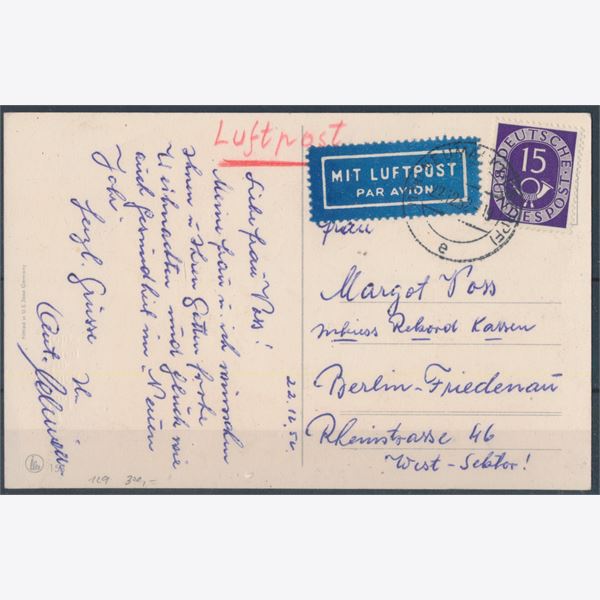 Luftpost
MIT LUFTPOST
PAR AVION
DEUTSCHE
15
BUNDESPOST
e
Frau
Margot Voss
Rekord Kassen
Berlin-Friedenau
Rheinstrasse 46
West-Sektor!
Liebe Frau Voss!
Meine Frau u. ich wünschen
Ihnen u. Ihrem Gatten frohe
Weihnachten und Glück wie
auch Gesundheit im Neuen
Jahr.
Herzl. Grüsse
Ihr
22.12.52
Printed in U.S. Zone Germany
129 300,-